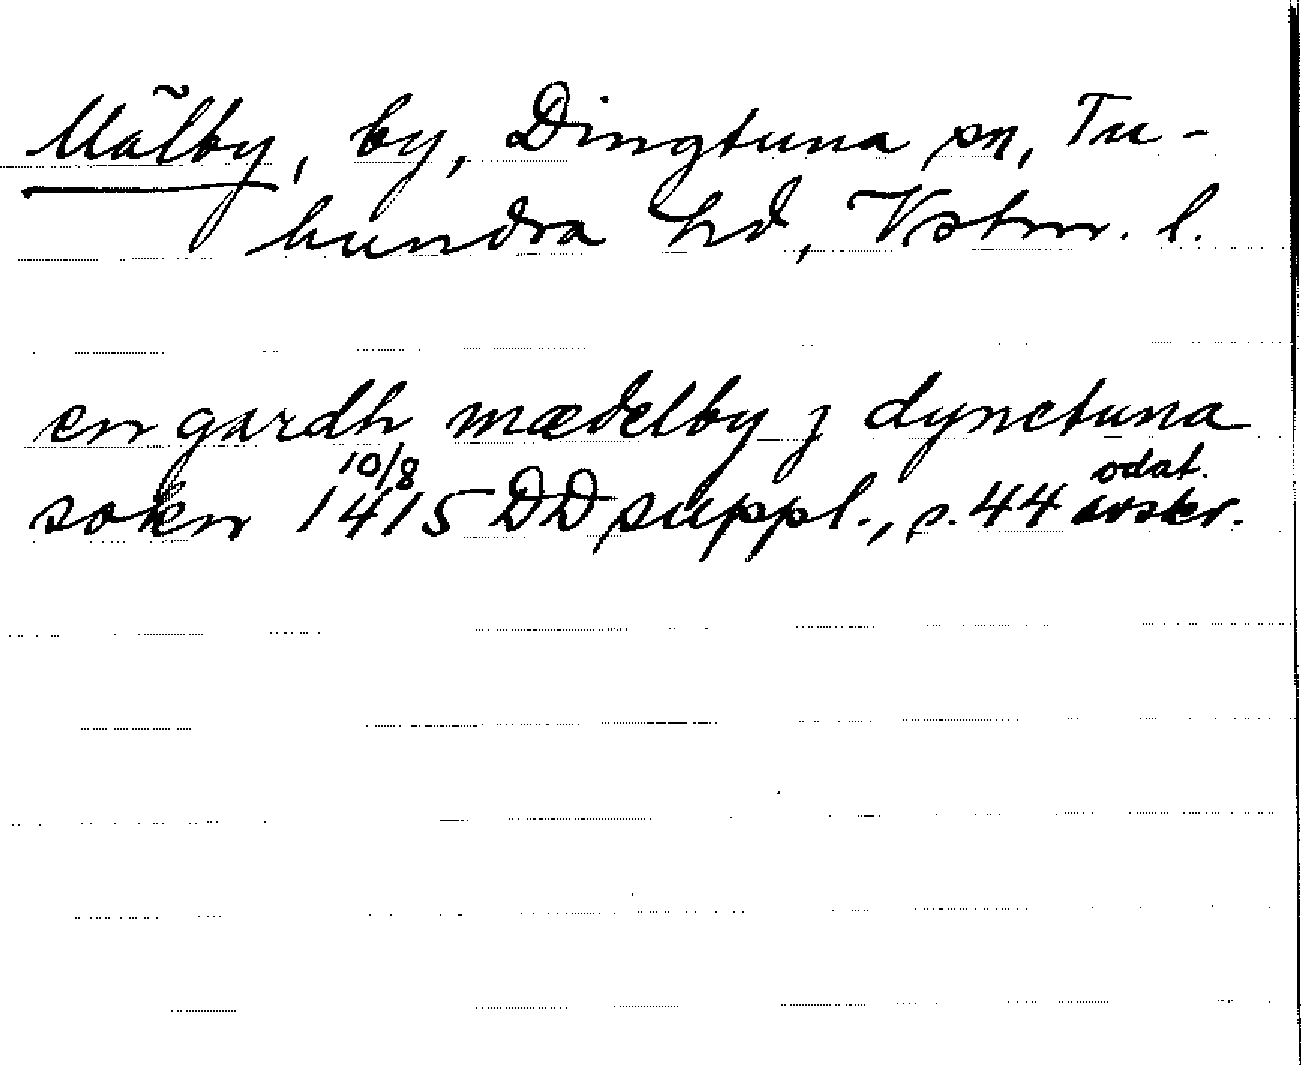 Mälby, by, Dingtuna sn, Tu-
hundra hd, Vstm. l.
en gardh mædelby j dynctuna
sokn 10/8 1415 DD suppl., s. 44 odat. avskr.